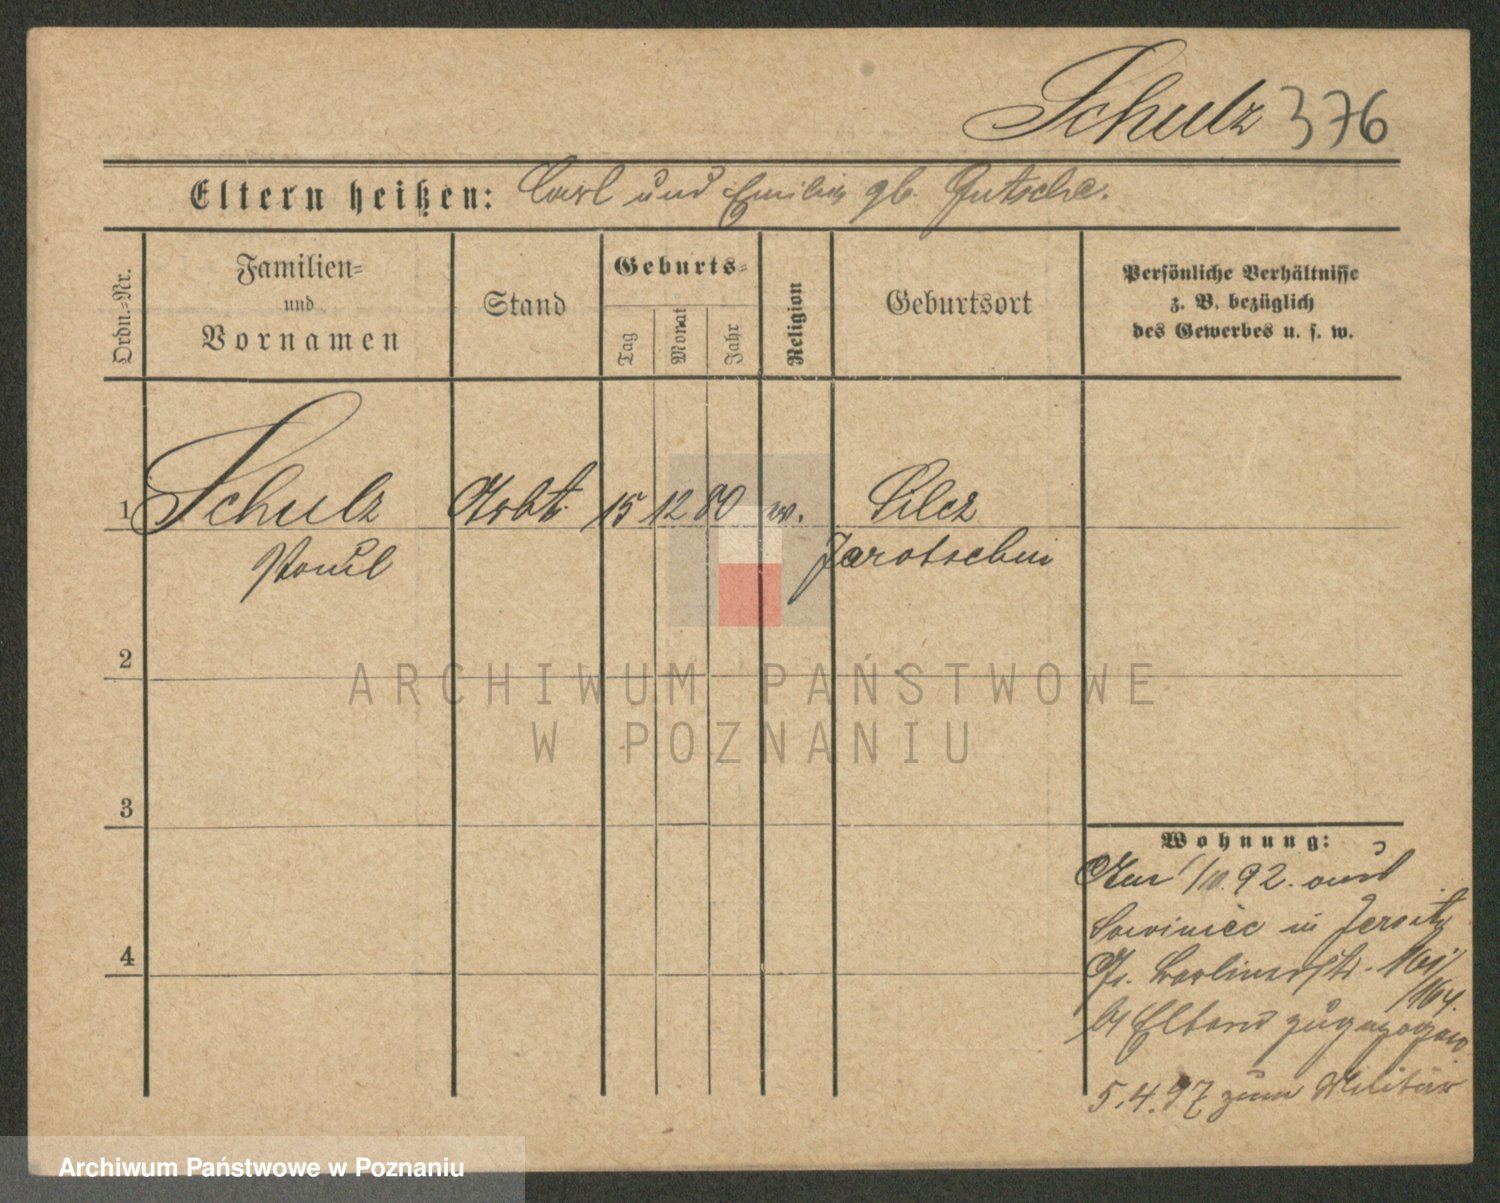 Schulz 376
Eltern heißen: Carl und Emilie gb. Gutsche.
Ordn.-Nr.
Familien-
und
Vornamen
Stand
Geburts-
Tag
Monat
Jahr
Religion
Geburtsort
Persönliche Verhältnisse
z. B. bezüglich
des Gewerbes u. s. w.
1 Schulz Arbt. 15 12 80
Paul
Jarotschin
2
ARCHIWUM PAŃSTWOWE
W POZNANIU
3
Wohnung:
92. aus
in Jersitz
Berlinerstr.
Eltern zugezogen
4
5.4.97 zum Militär
Archiwum Państwowe w Poznaniu